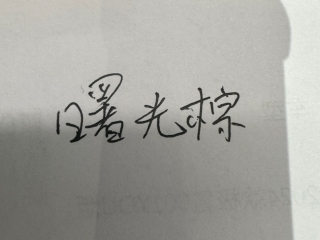 曙光棕